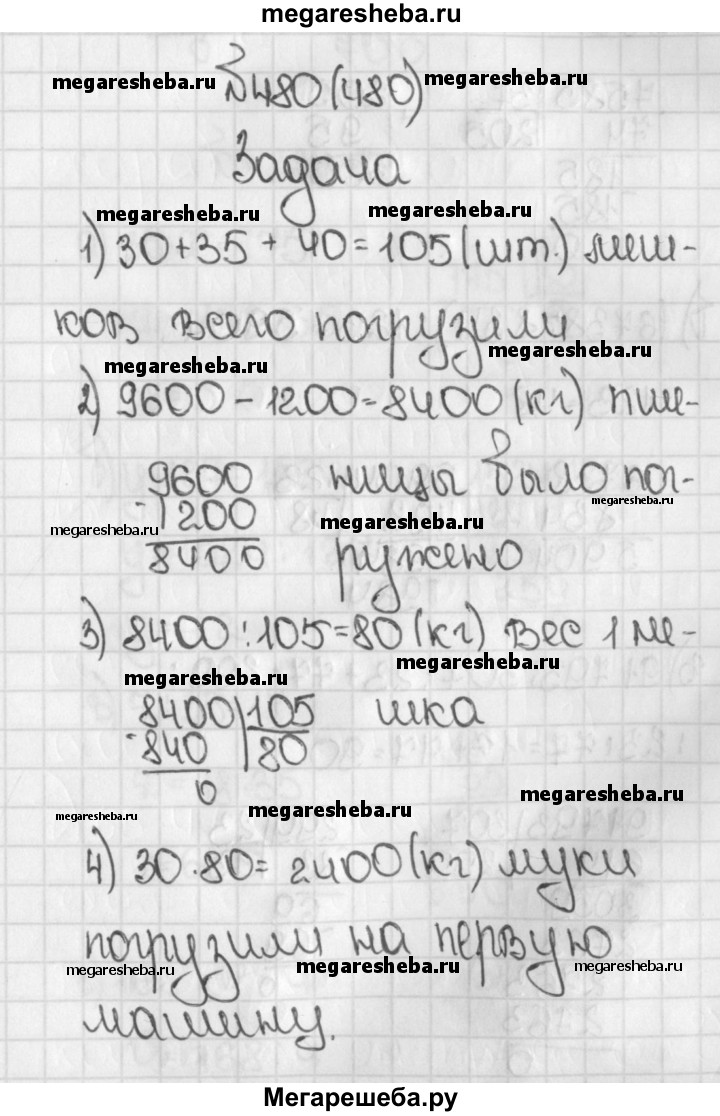 megaresheba.ru
№480(480)
megaresheba.ru megaresheba.ru
Задача
megaresheba.ru megaresheba.ru
1) 30+35+40=105(шт.) меш-
ков всего погрузили
megaresheba.ru megaresheba.ru
2) 9600-1200=8400(кг) пше-
9600 ницы было пог-
megaresheba.ru
-1200
megaresheba.ru megaresheba.ru
8400 ружено
3) 8400:105=80(кг) вес 1 ме-
megaresheba.ru megaresheba.ru
8400 105 шка
-840 80
0
megaresheba.ru megaresheba.ru megaresheba.ru
4) 30·80=2400(кг) муки
погрузили на первую
megaresheba.ru megaresheba.ru megaresheba.ru
машину.
Мегарешеба.ру